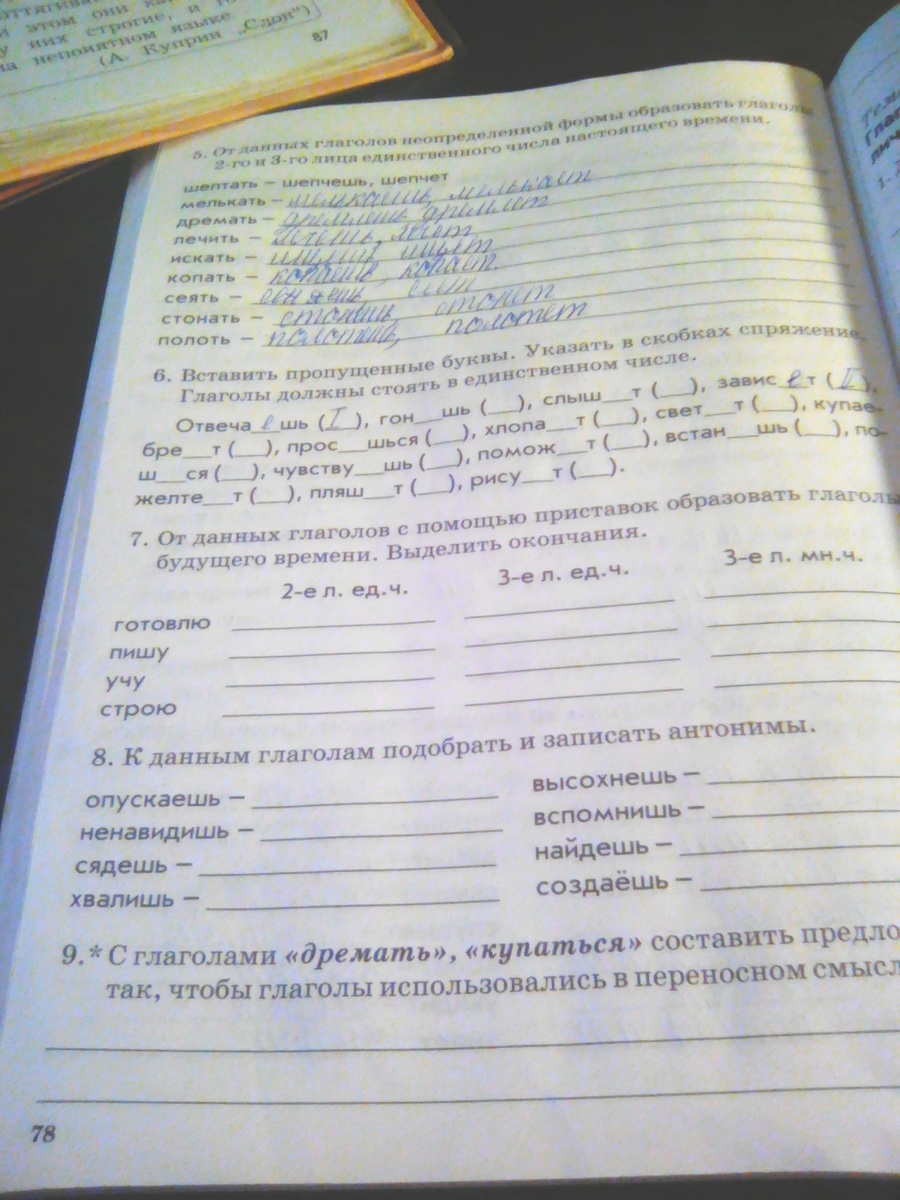 оттягива
и этом они ка
у них строгие, и го
на непонятном языке.
(А. Куприн „Слон")
87
5. От данных глаголов неопределенной формы образовать глаголы
2-го и 3-го лица единственного числа настоящего времени.
шептать – шепчешь, шепчет
мелькать – мелькаешь, мелькает
дремать – дремлешь дремлет
лечить –
искать –
копать – копаешь, копает.
сеять –
стонать – стонешь, стонет
полоть –
6. Вставить пропущенные буквы. Указать в скобках спряжение.
Глаголы должны стоять в единственном числе.
Отвеча е шь (I), гон__шь (__), слыш__т (__), завис е т (II),
бре__т (__), прос__шься (__), хлопа__т (__), свет__т (__), купае-
ш__ся (__), чувству__шь (__), помож__т (__), встан__шь (__), по-
желте__т (__), пляш__т (__), рису__т (__).
7. От данных глаголов с помощью приставок образовать глаголы
будущего времени. Выделить окончания.
2-е л. ед.ч. 3-е л. ед.ч. 3-е л. мн.ч.
готовлю
пишу
учу
строю
8. К данным глаголам подобрать и записать антонимы.
опускаешь – высохнешь –
ненавидишь – вспомнишь –
сядешь – найдешь –
хвалишь – создаёшь –
9.* С глаголами «дремать», «купаться» составить предло
так, чтобы глаголы использовались в переносном смысл
78
Тема
1.